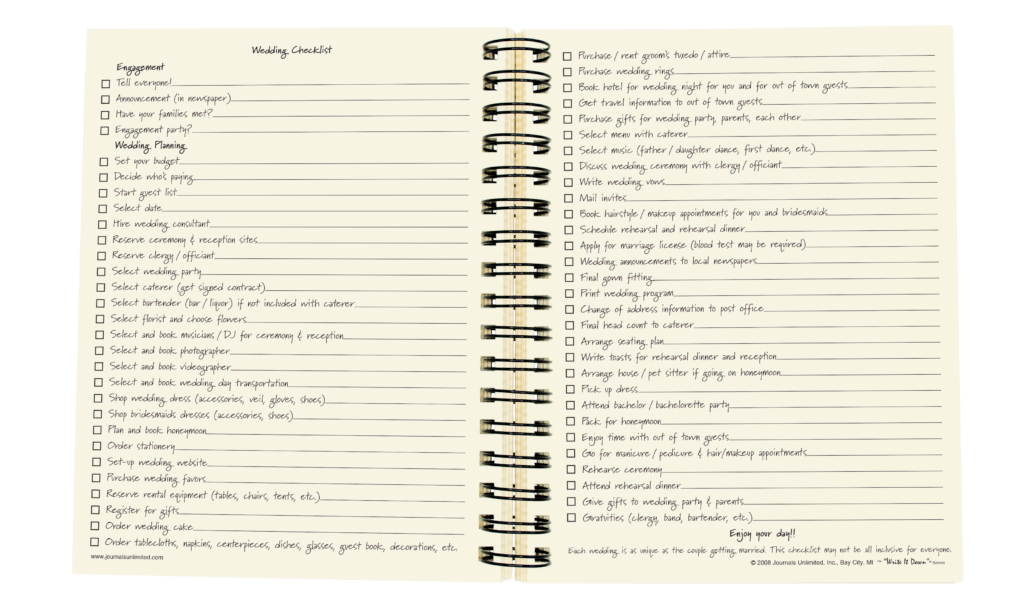 Wedding Checklist
Engagement
Tell everyone!
Announcement (in newspaper)
Have your families met?
Engagement party?
Wedding Planning
Set your budget
Decide who's paying
Start guest list
Select date
Hire wedding consultant
Reserve ceremony & reception sites
Reserve clergy / officiant
Select wedding party
Select caterer (get signed contract)
Select bartender (bar / liquor) if not included with caterer
Select florist and choose flowers
Select and book musicians / DJ for ceremony & reception
Select and book photographer
Select and book videographer
Select and book wedding day transportation
Shop wedding dress (accessories, veil, gloves, shoes)
Shop bridesmaids dresses (accessories, shoes)
Plan and book honeymoon
Order stationery
Set-up wedding website
Purchase wedding favors
Reserve rental equipment (tables, chairs, tents, etc.)
Register for gifts
Order wedding cake
Order tablecloths, napkins, centerpieces, dishes, glasses, guest book, decorations, etc.
www.journalsunlimited.com
Purchase / rent groom's tuxedo / attire
Purchase wedding rings
Book hotel for wedding night for you and for out of town guests
Get travel information to out of town guests
Purchase gifts for wedding party, parents, each other
Select menu with caterer
Select music (father / daughter dance, first dance, etc.)
Discuss wedding ceremony with clergy / officiant
Write wedding vows
Mail invites
Book hairstyle / makeup appointments for you and bridesmaids
Schedule rehearsal and rehearsal dinner
Apply for marriage license (blood test may be required)
Wedding announcements to local newspapers
Final gown fitting
Print wedding program
Change of address information to post office
Final head count to caterer
Arrange seating plan
Write toasts for rehearsal dinner and reception
Arrange house / pet sitter if going on honeymoon
Pick up dress
Attend bachelor / bachelorette party
Pack for honeymoon
Enjoy time with out of town guests
Go for manicure / pedicure & hair/makeup appointments
Rehearse ceremony
Attend rehearsal dinner
Give gifts to wedding party & parents
Gratuities (clergy, band, bartender, etc.)
Enjoy your day!!
Each wedding is as unique as the couple getting married. This checklist may not be all inclusive for everyone.
© 2008 Journals Unlimited, Inc., Bay City, MI ~ "Write It Down"